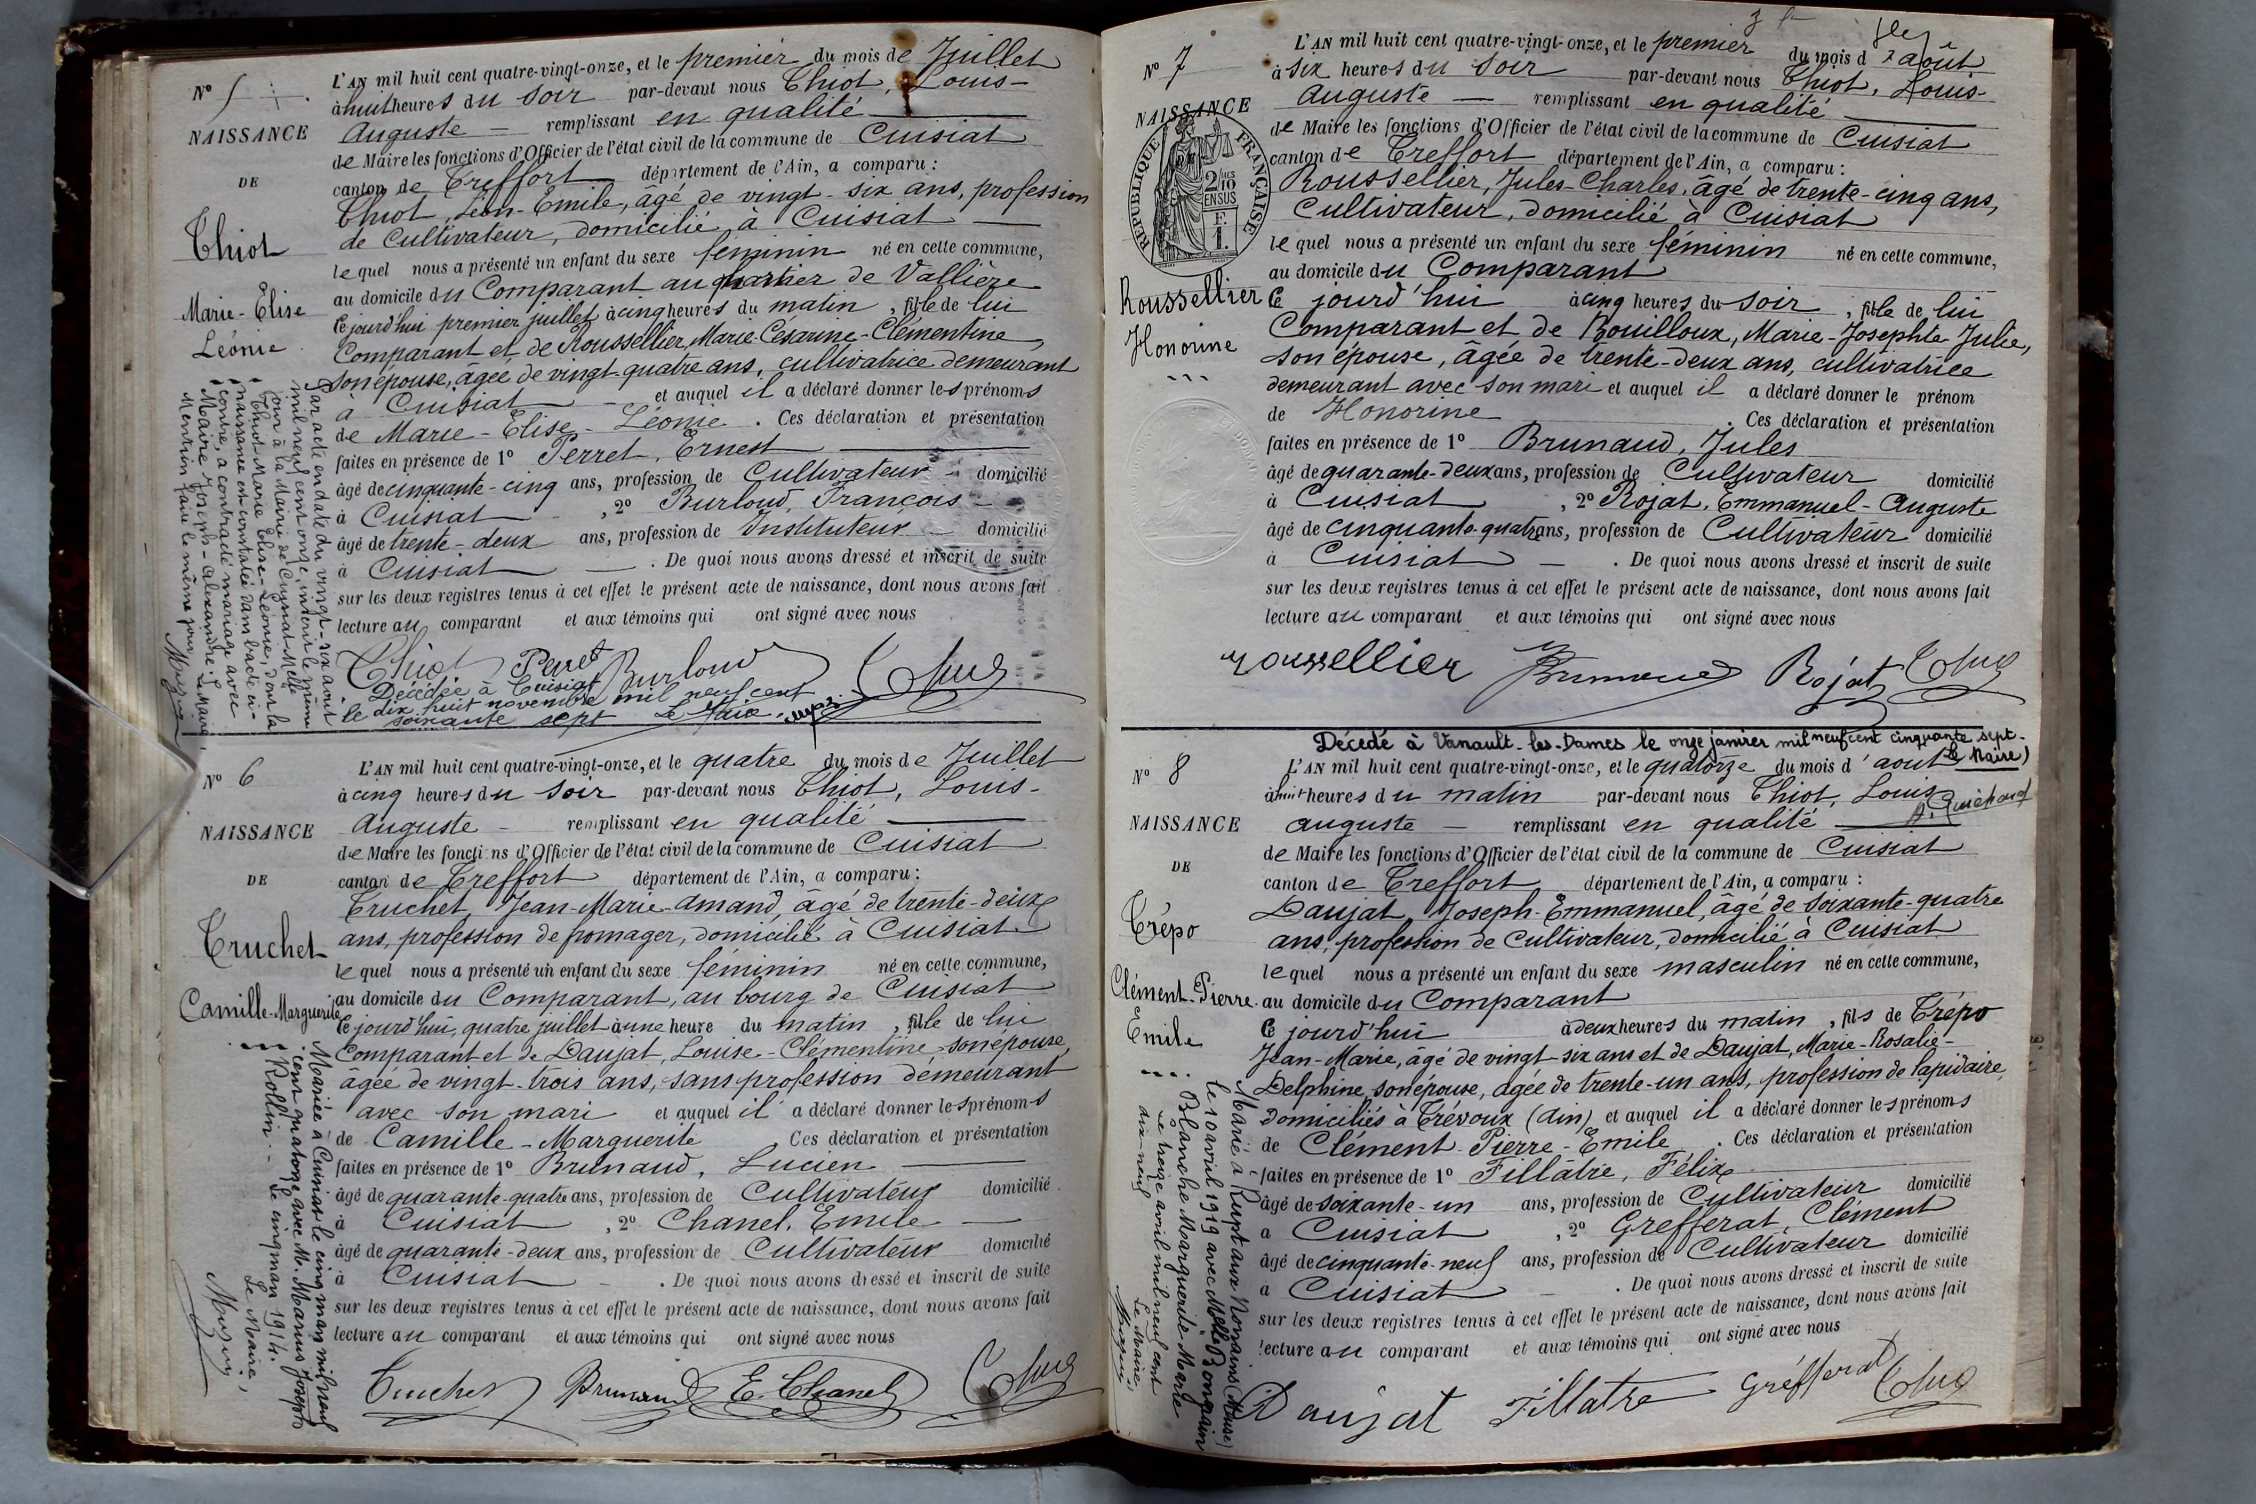 N° 5
NAISSANCE
DE
Thiot
Marie-Élise
Léonie
L'AN mil huit cent quatre-vingt-onze, et le premier du mois de Juillet
à huit heures du soir par-devant nous Thiot, Louis-
Auguste — remplissant en qualité
de Maire les fonctions d'Officier de l'état civil de la commune de Cuisiat
canton de Treffort département de l'Ain, a comparu :
Thiot, Léon-Emile, âgé de vingt-six ans, profession
de Cultivateur, domicilié à Cuisiat
lequel nous a présenté un enfant du sexe féminin né en cette commune,
au domicile du Comparant au quartier de Vallière
ce jourd'hui premier juillet à cinq heures du matin, fille de lui
Comparant et de Roussellier, Marie-Césarine-Clémentine,
son épouse, âgée de vingt-quatre ans, cultivatrice demeurant
à Cuisiat — et auquel il a déclaré donner les prénoms
de Marie-Elise-Léonie. Ces déclaration et présentation
faites en présence de 1° Perret, Ernest
âgé de cinquante-cinq ans, profession de Cultivateur domicilié
à Cuisiat, 2° Burloud, François
âgé de trente-deux ans, profession de Instituteur domicilié
à Cuisiat — . De quoi nous avons dressé et inscrit de suite
sur les deux registres tenus à cet effet le présent acte de naissance, dont nous avons fait
lecture au comparant et aux témoins qui ont signé avec nous
Thiot Perret Burloud
Décédée à Cuisiat
le dix huit novembre mil neuf cent
soixante sept Le Maire
Par acte en date du vingt-six août
mil neuf cent onze, inscrit le même
jour à la Mairie de Cuisiat Melle
Thiot Marie Elise-Léonie, dont la
naissance est constatée dans l'acte ci-
contre, a contracté mariage avec
Joseph-Alexandre
Mention faite le même jour. Le Maire,
N° 6
NAISSANCE
DE
Truchet
Camille-Marguerite
L'AN mil huit cent quatre-vingt-onze, et le quatre du mois de Juillet
à cinq heures du soir par-devant nous Thiot, Louis-
Auguste — remplissant en qualité
de Maire les fonctions d'Officier de l'état civil de la commune de Cuisiat
canton de Treffort département de l'Ain, a comparu :
Truchet Jean-Marie-Amand, âgé de trente-deux
ans, profession de fromager, domicilié à Cuisiat
lequel nous a présenté un enfant du sexe féminin né en cette commune,
au domicile du Comparant, au bourg de Cuisiat
ce jourd'hui, quatre juillet à une heure du matin, fille de lui
Comparant et de Daujat, Louise-Clémentine son épouse,
âgée de vingt-trois ans, sans profession demeurant
avec son mari et auquel il a déclaré donner les prénoms
de Camille-Marguerite Ces déclaration et présentation
faites en présence de 1° Brunaud, Lucien
âgé de quarante-quatre ans, profession de Cultivateur domicilié
à Cuisiat, 2° Chanel, Emile
âgé de quarante-deux ans, profession de Cultivateur domicilié
à Cuisiat — . De quoi nous avons dressé et inscrit de suite
sur les deux registres tenus à cet effet le présent acte de naissance, dont nous avons fait
lecture au comparant et aux témoins qui ont signé avec nous
Truchet Brunaud E. Chanel
Mariée à Cuisiat le cinq mai mil neuf
cent quatorze avec M. Marius Joseph
Rollin. Le cinq mai 1914.
Le Maire,
N° 7
NAISSANCE
RÉPUBLIQUE FRANÇAISE
2/10 EN SUS
F. 1.
Roussellier
Honorine
L'AN mil huit cent quatre-vingt-onze, et le premier du mois d'août
à six heures du soir par-devant nous Thiot, Louis-
Auguste — remplissant en qualité
de Maire les fonctions d'Officier de l'état civil de la commune de Cuisiat
canton de Treffort département de l'Ain, a comparu :
Roussellier, Jules-Charles, âgé de trente-cinq ans,
Cultivateur, domicilié à Cuisiat
lequel nous a présenté un enfant du sexe féminin né en cette commune,
au domicile du Comparant
ce jourd'hui à cinq heures du soir, fille de lui
Comparant et de Bouilloux, Marie-Josephte Julie,
son épouse, âgée de trente-deux ans, cultivatrice
demeurant avec son mari et auquel il a déclaré donner le prénom
de Honorine. Ces déclaration et présentation
faites en présence de 1° Brunaud, Jules
âgé de quarante-deux ans, profession de Cultivateur domicilié
à Cuisiat, 2° Rojat, Emmanuel-Auguste
âgé de cinquante-quatre ans, profession de Cultivateur domicilié
à Cuisiat — . De quoi nous avons dressé et inscrit de suite
sur les deux registres tenus à cet effet le présent acte de naissance, dont nous avons fait
lecture au comparant et aux témoins qui ont signé avec nous
roussellier Brunaud Rojat
Décédé à Vanault-les-Dames le onze janvier mil neuf cent cinquante sept.
Le Maire
N° 8
NAISSANCE
DE
Trépo
Clément-Pierre
Emile
L'AN mil huit cent quatre-vingt-onze, et le quatorze du mois d'aout
à huit heures du matin par-devant nous Thiot, Louis
Auguste — remplissant en qualité
de Maire les fonctions d'Officier de l'état civil de la commune de Cuisiat
canton de Treffort département de l'Ain, a comparu :
Daujat Joseph-Emmanuel, âgé de soixante-quatre
ans, profession de Cultivateur, domicilié à Cuisiat
lequel nous a présenté un enfant du sexe masculin né en cette commune,
au domicile du Comparant
ce jourd'hui à deux heures du matin, fils de Trépo
Jean-Marie, âgé de vingt-six ans et de Daujat, Marie-Rosalie-
Delphine, son épouse, âgée de trente-un ans, profession de lapidaire,
domiciliés à Trévoux (Ain) et auquel il a déclaré donner les prénoms
de Clément-Pierre-Emile. Ces déclaration et présentation
faites en présence de 1° Fillâtre, Félix
âgé de soixante-un ans, profession de Cultivateur domicilié
à Cuisiat, 2° Grefferat, Clément
âgé de cinquante-neuf ans, profession de Cultivateur domicilié
à Cuisiat — . De quoi nous avons dressé et inscrit de suite
sur les deux registres tenus à cet effet le présent acte de naissance, dont nous avons fait
lecture au comparant et aux témoins qui ont signé avec nous
Daujat Fillatre Gréfferat
Marié à Rupt aux Nonains (Meuse)
le 10 avril 1919 avec Melle Bonpain
Blanche Marguerite Marie
Le treize avril mil neuf cent
dix-neuf Le Maire,